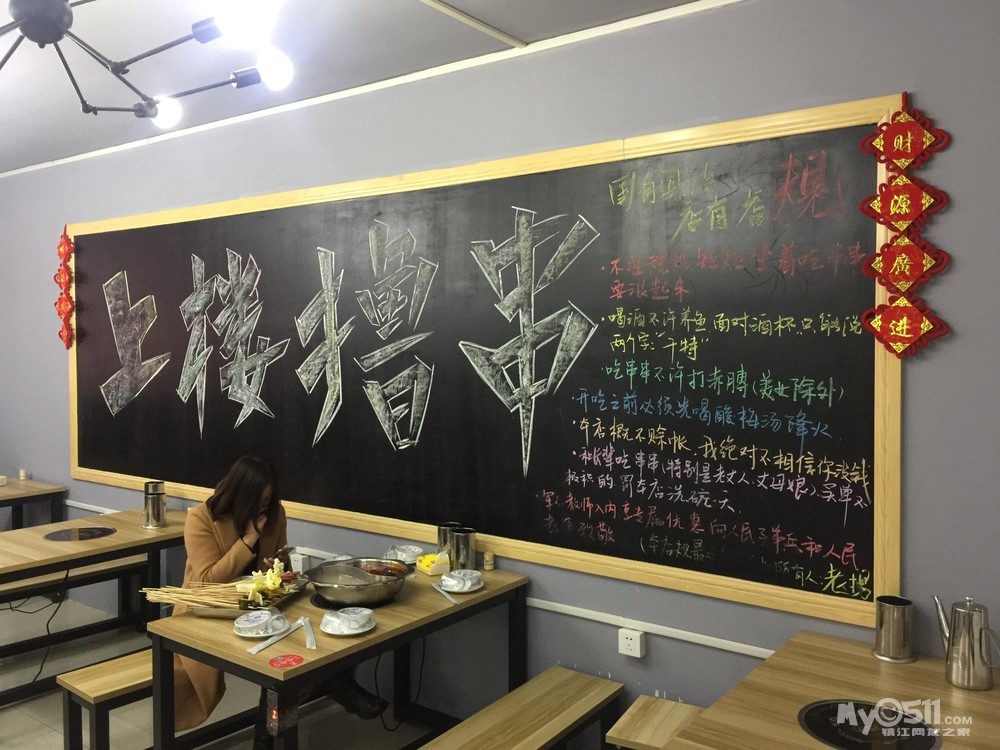 上楼撸串
国有国法
店有店规
着吃串串
要浪起来
·喝酒不许养鱼 面对酒杯只能说
两个字:"干特"
·吃串串不许打赤膊(美女除外)
·开吃之前必须先喝酸梅汤降火
·本店概不赊帐.我绝对不相信你没钱
吃串串(特别是老丈人、丈母娘),买单不
积极的 罚本店洗碗一天
军人教师入内享专属优惠 向人民子弟兵和人民
教师致敬
(本店规最
人:老
财源廣进
My0511.COM
镇江网友之家